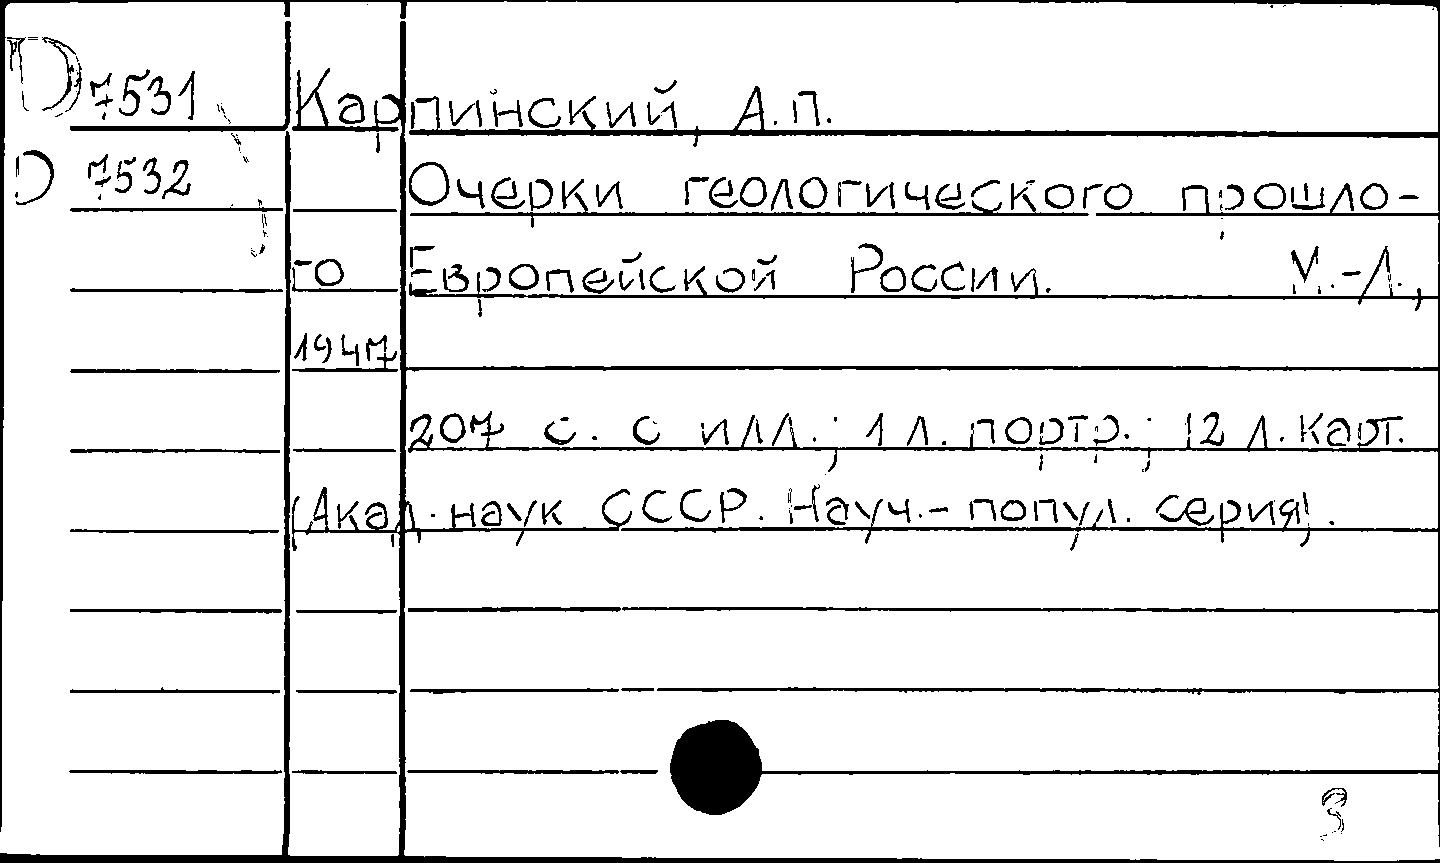 D 7531 Карпинский, А.П.
D 7532 Очерки геологического прошло-
го Европейской России. М.-Л.,
1947
207 с. с илл.; 1 л. портр.; 12 л. карт.
(Акад. наук СССР. Науч.-попул. серия).
3